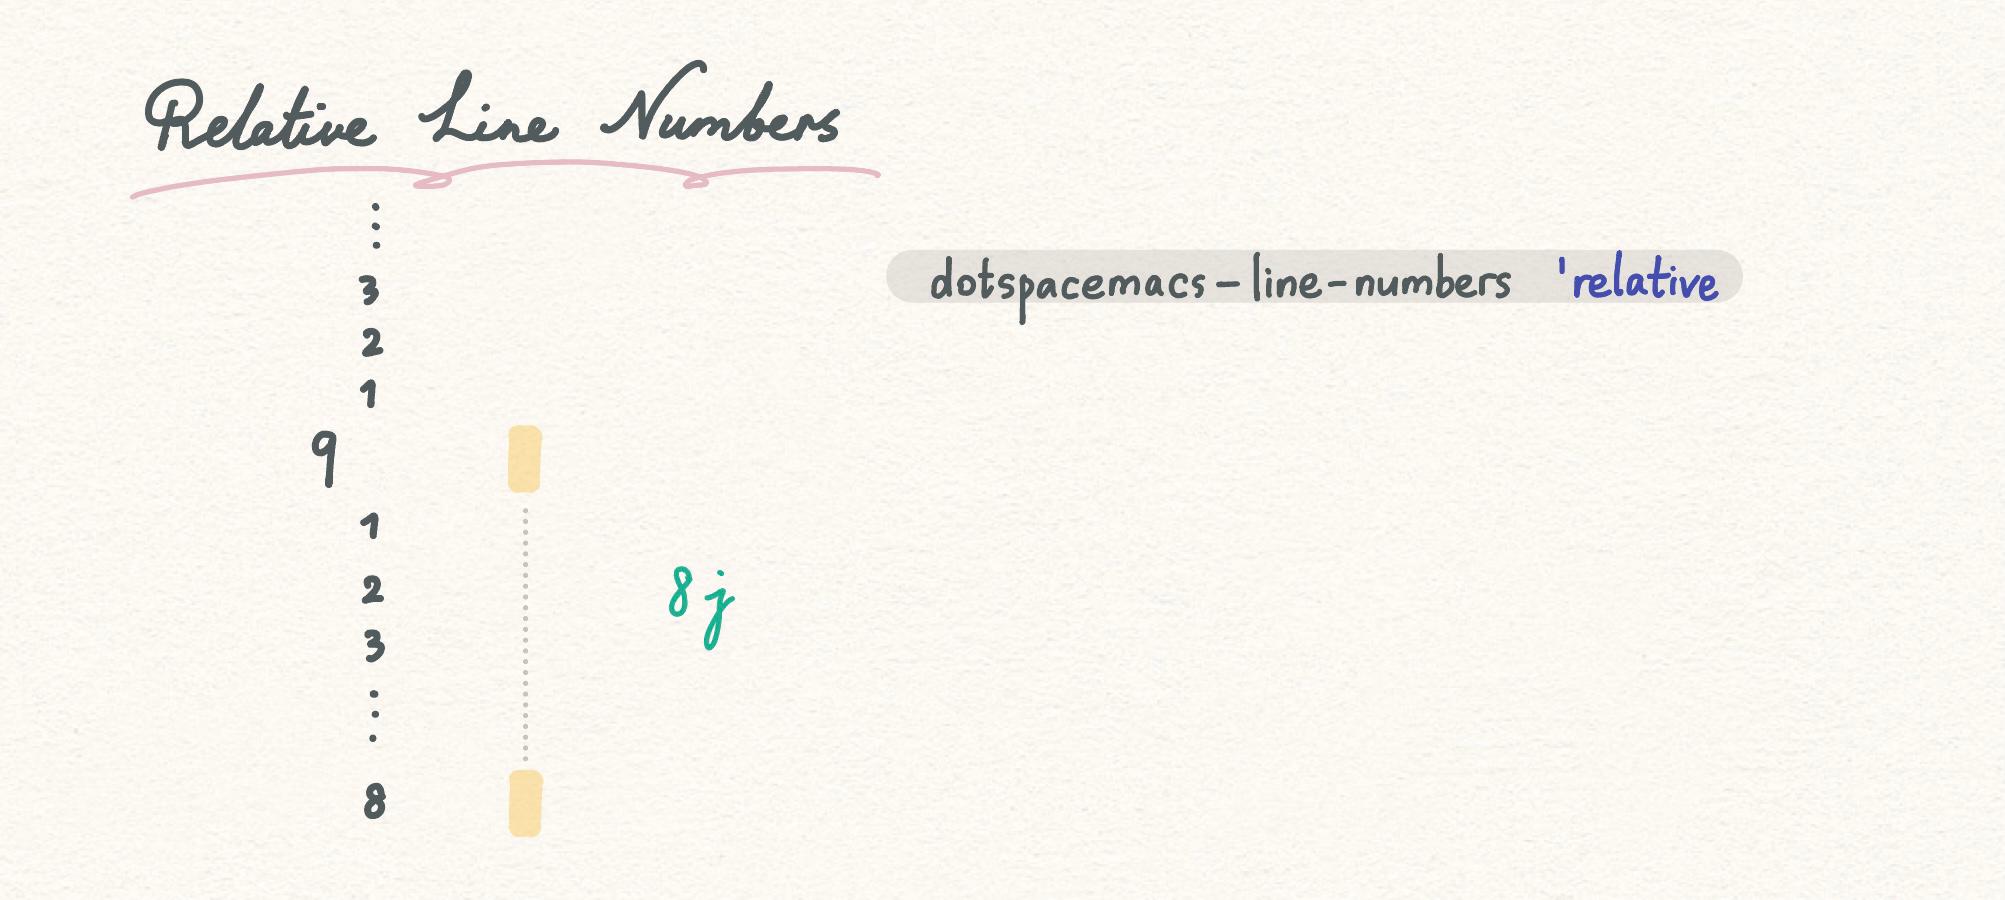 Relative Line Numbers
⋮
3
2
1
9
1
2
3
⋮
8
8j
dotspacemacs-line-numbers 'relative